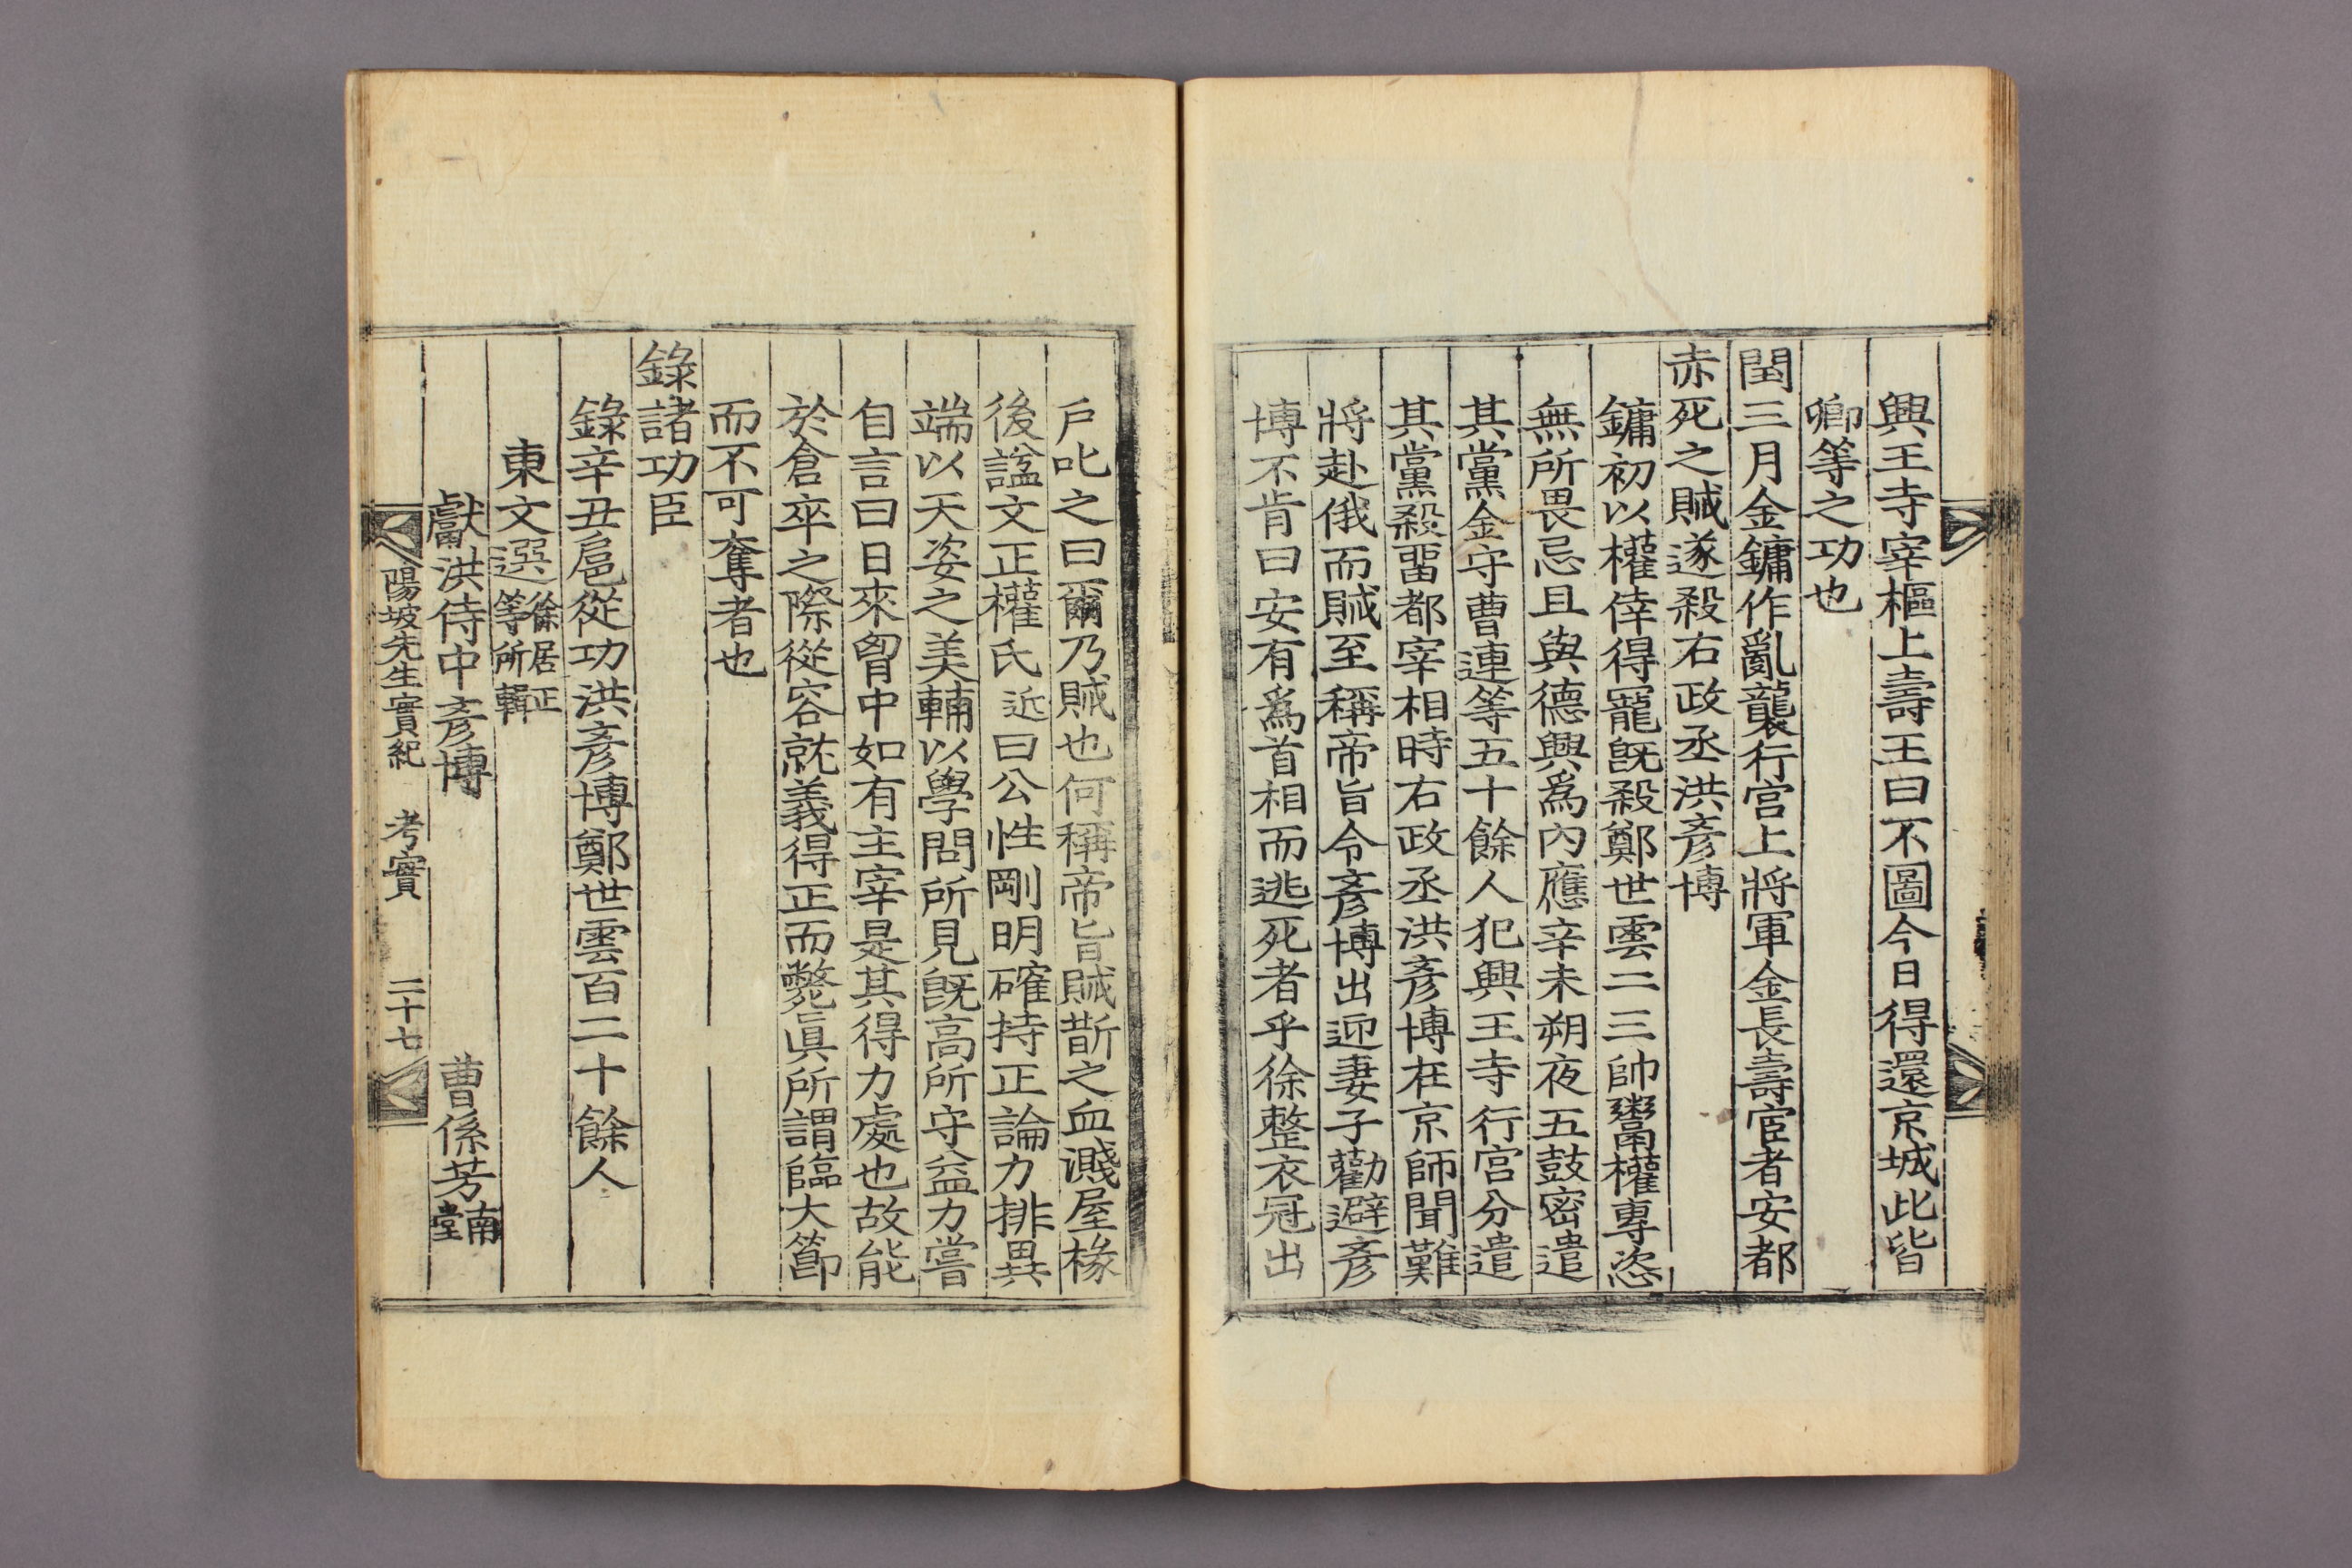 興王寺宰樞上壽王曰不圖今日得還京城此皆
卿等之功也
閏三月金鏞作亂襲行宮上將軍金長壽宦者安都
赤死之賊遂殺右政丞洪彦博
鏞初以權倖得寵旣殺鄭世雲二三帥鬻權專恣
無所畏忌且與德興爲內應辛未朔夜五鼓密遣
其黨金守曹連等五十餘人犯興王寺行宮分遣
其黨殺留都宰相時右政丞洪彦博在京師聞難
將赴俄而賊至稱帝旨令彦博出迎妻子勸避彦
博不肯曰安有爲首相而逃死者乎徐整衣冠出
戶叱之曰爾乃賊也何稱帝旨賊斮之血濺屋椽
後諡文正權氏近曰公性剛明確持正論力排異
端以天姿之美輔以學問所見旣高所守益力嘗
自言曰日來胷中如有主宰是其得力處也故能
於倉卒之際從容就義得正而斃眞所謂臨大節
而不可奪者也
錄諸功臣
錄辛丑扈從功洪彦博鄭世雲百二十餘人
東文選徐居正等所輯
獻洪侍中彦博 曹係芳南堂
陽坡先生實紀 考實 二十七